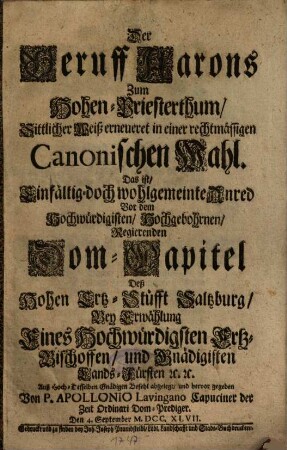 Der
Beruff Aarons
Zum
Hohen-Priesterthum/
Sittlicher Weiß erneueret in einer rechtmässigen
Canonischen Wahl.
Das ist/
Einfältig-doch wohlgemeinte Anred
Vor dem
Hochwürdigisten/ Hochgebohrnen/
Regierenden
Dom-Capitel
Deß
Hohen Ertz-Stüfft Saltzburg/
Bey Erwählung
Eines Hochwürdigsten Ertz-
Bischoffen/ und Gnädigisten
Lands-Fürsten ꝛc. ꝛc.
Auß Hoch-Derselben Gnädigen Befehl abgelegt und hervor gegeben
Von P. APOLLONIO Lavingano Capuciner der
Zeit Ordinari Dom-Prediger.
Den 4. September M.DCC.XLVII.
Gedruckt und zu finden bey Joh. Joseph Hochfürstl. Landschafft und Stadt-Buchdruckern.
1747